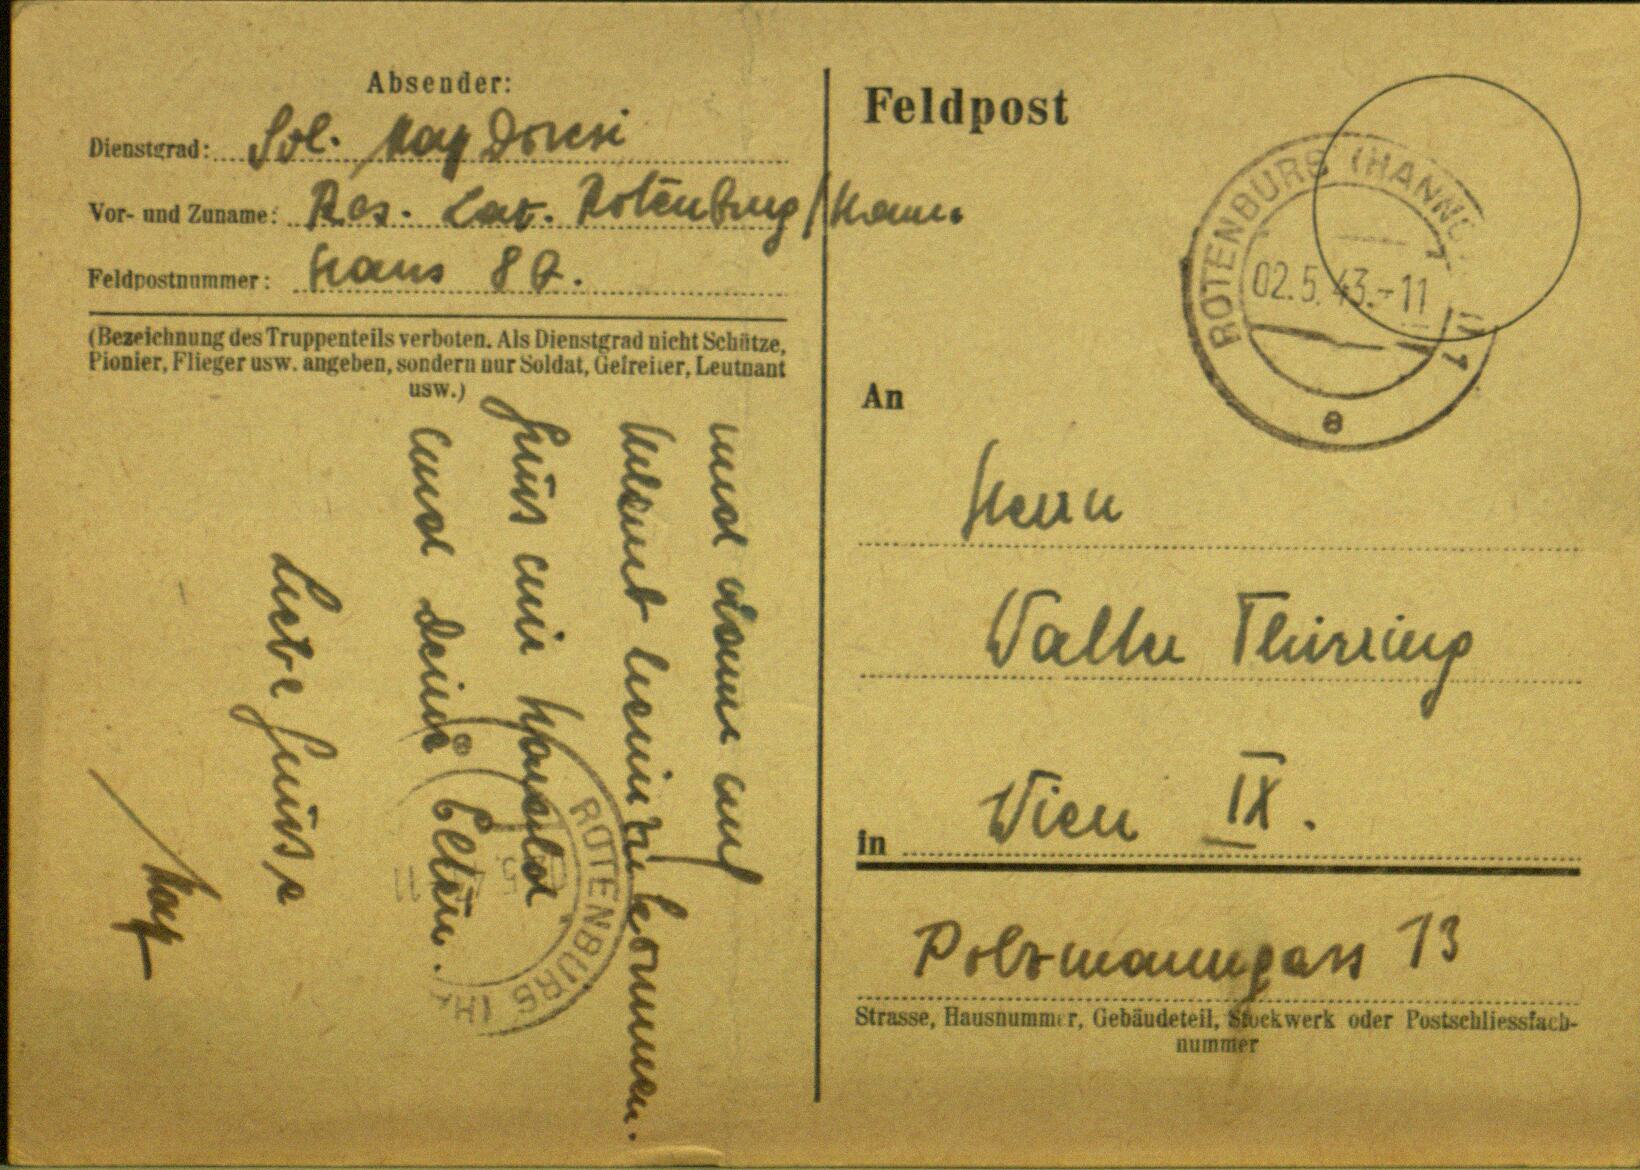 Absender:
Dienstgrad: Sol. Max Doresi
Vor- und Zuname: Res. Laz. Rotenburg/Hann.
Feldpostnummer: Haus 8 a.
(Bezeichnung des Truppenteils verboten. Als Dienstgrad nicht Schütze,
Pionier, Flieger usw. angeben, sondern nur Soldat, Gefreiter, Leutnant
usw.)
und dann auf
Urlaub heim zu kommen.
Grüss mir Harald
und deine Eltern.
Liebe Grüsse
Max
ROTENBURG (HA
5. 11
Feldpost
ROTENBURG (HANNO
02.5.43.-11
a
An
Herrn
Walter Thirring
in Wien IX.
Polzmanngass 13
Strasse, Hausnummer, Gebäudeteil, Stockwerk oder Postschliessfach-
nummer